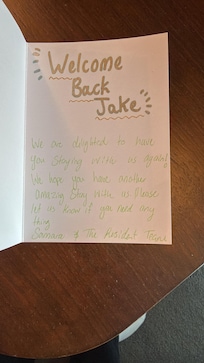 Welcome
Back
Jake
We are delighted to have
you staying with us again
We hope you have another
amazing stay with us. Please
let us know if you need any
thing
& The Resident Team